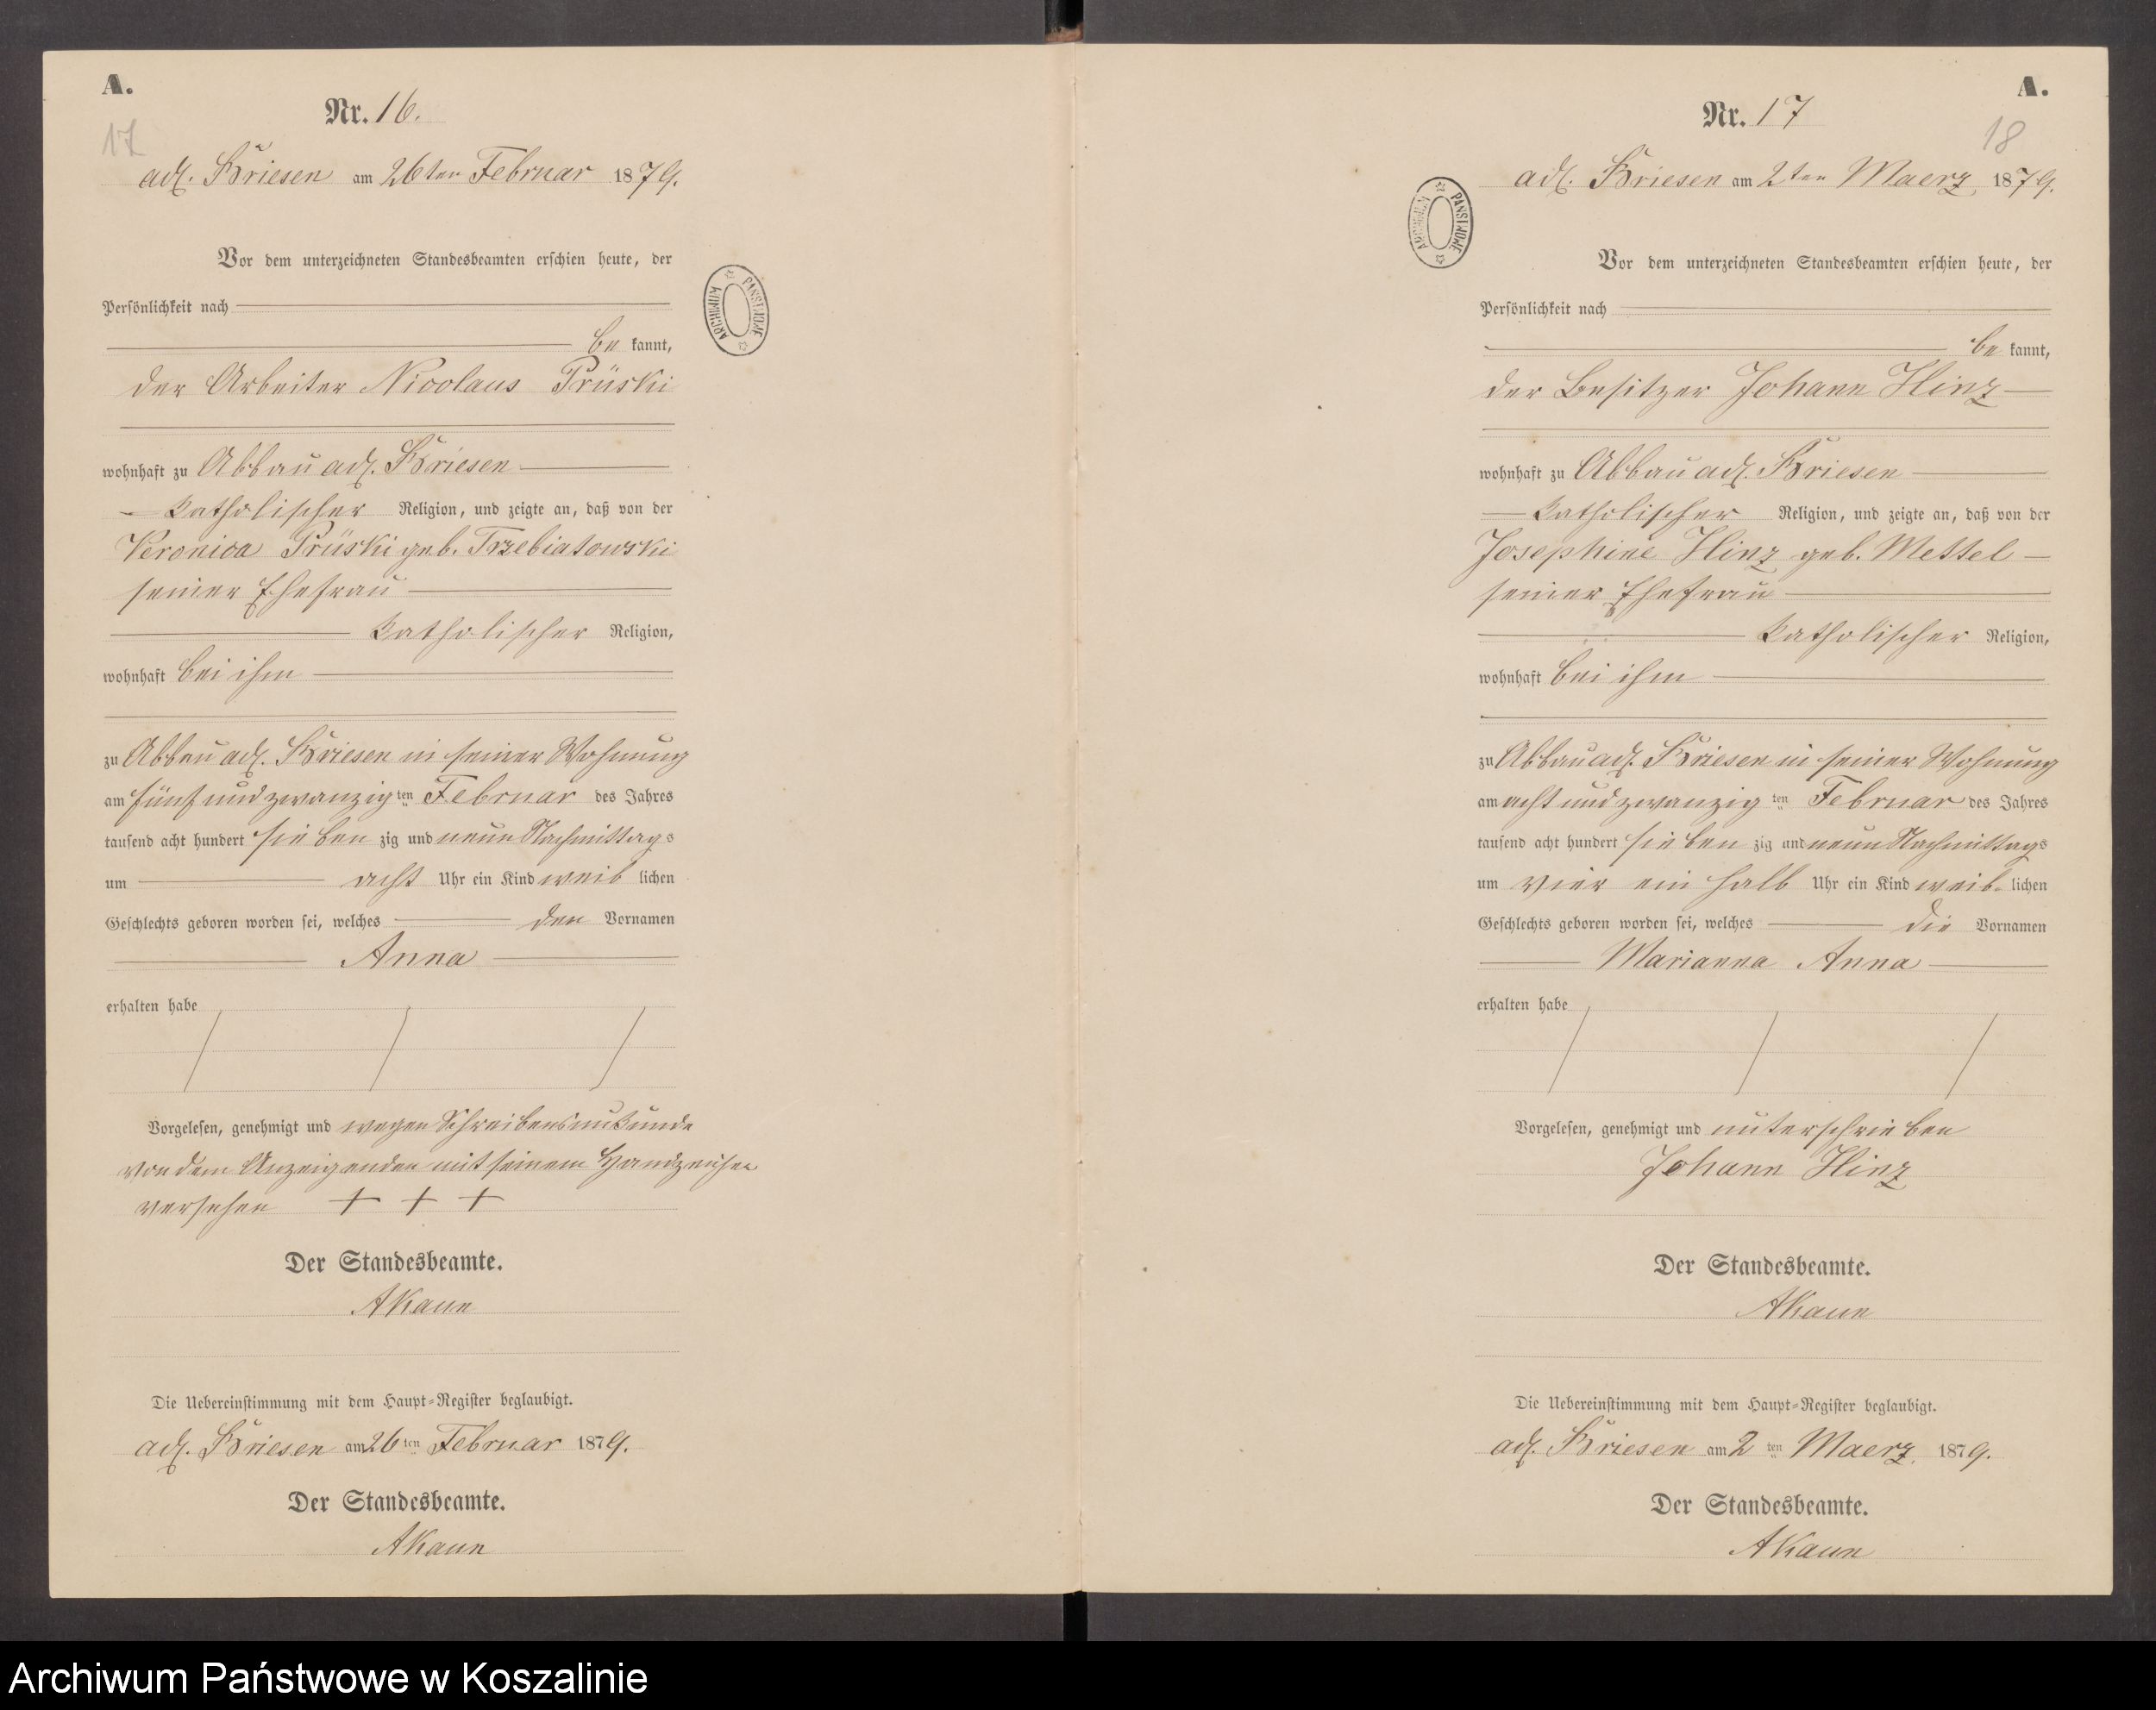 A.
Nr. 16.
17
adl. Briesen am 26ten Februar 1879.
Vor dem unterzeichneten Standesbeamten erschien heute, der
Persönlichkeit nach
be kannt,
der Arbeiter Nicolaus Prüski
wohnhaft zu Abbau adl. Briesen
katholischer Religion, und zeigte an, daß von der
Veronica Prüski geb. Trzebiatowski
seiner Ehefrau
katholischer Religion,
wohnhaft bei ihm
zu Abbau adl. Briesen in seiner Wohnung
am fünf und zwanzig ten Februar des Jahres
tausend acht hundert sieben zig und neun Nachmittags
um acht Uhr ein Kind weib lichen
Geschlechts geboren worden sei, welches den Vornamen
Anna
erhalten habe
Vorgelesen, genehmigt und wegen Schreibensunkunde
von dem Anzeigenden mit seinem Handzeichen
versehen + + +
Der Standesbeamte.
AKaun
Die Uebereinstimmung mit dem Haupt-Register beglaubigt.
adl. Briesen am 26 ten Februar 1879.
Der Standesbeamte.
AKaun
ARCHIWUM PAŃSTWOWE
A.
Nr. 17
18
adl. Briesen am 2ten Maerz 1879.
Vor dem unterzeichneten Standesbeamten erschien heute, der
Persönlichkeit nach
be kannt,
der Besitzer Johann Hinz
wohnhaft zu Abbau adl. Briesen
katholischer Religion, und zeigte an, daß von der
Josephine Hinz geb. Mettel
seiner Ehefrau
katholischer Religion,
wohnhaft bei ihm
zu Abbau adl. Briesen in seiner Wohnung
am acht und zwanzig ten Februar des Jahres
tausend acht hundert sieben zig und neun Nachmittags
um vier ein halb Uhr ein Kind weib lichen
Geschlechts geboren worden sei, welches die Vornamen
Marianna Anna
erhalten habe
Vorgelesen, genehmigt und unterschrieben
Johann Hinz
Der Standesbeamte.
AKaun
Die Uebereinstimmung mit dem Haupt-Register beglaubigt.
adl. Briesen am 2 ten Maerz 1879.
Der Standesbeamte.
AKaun
ARCHIWUM PAŃSTWOWE
Archiwum Państwowe w Koszalinie